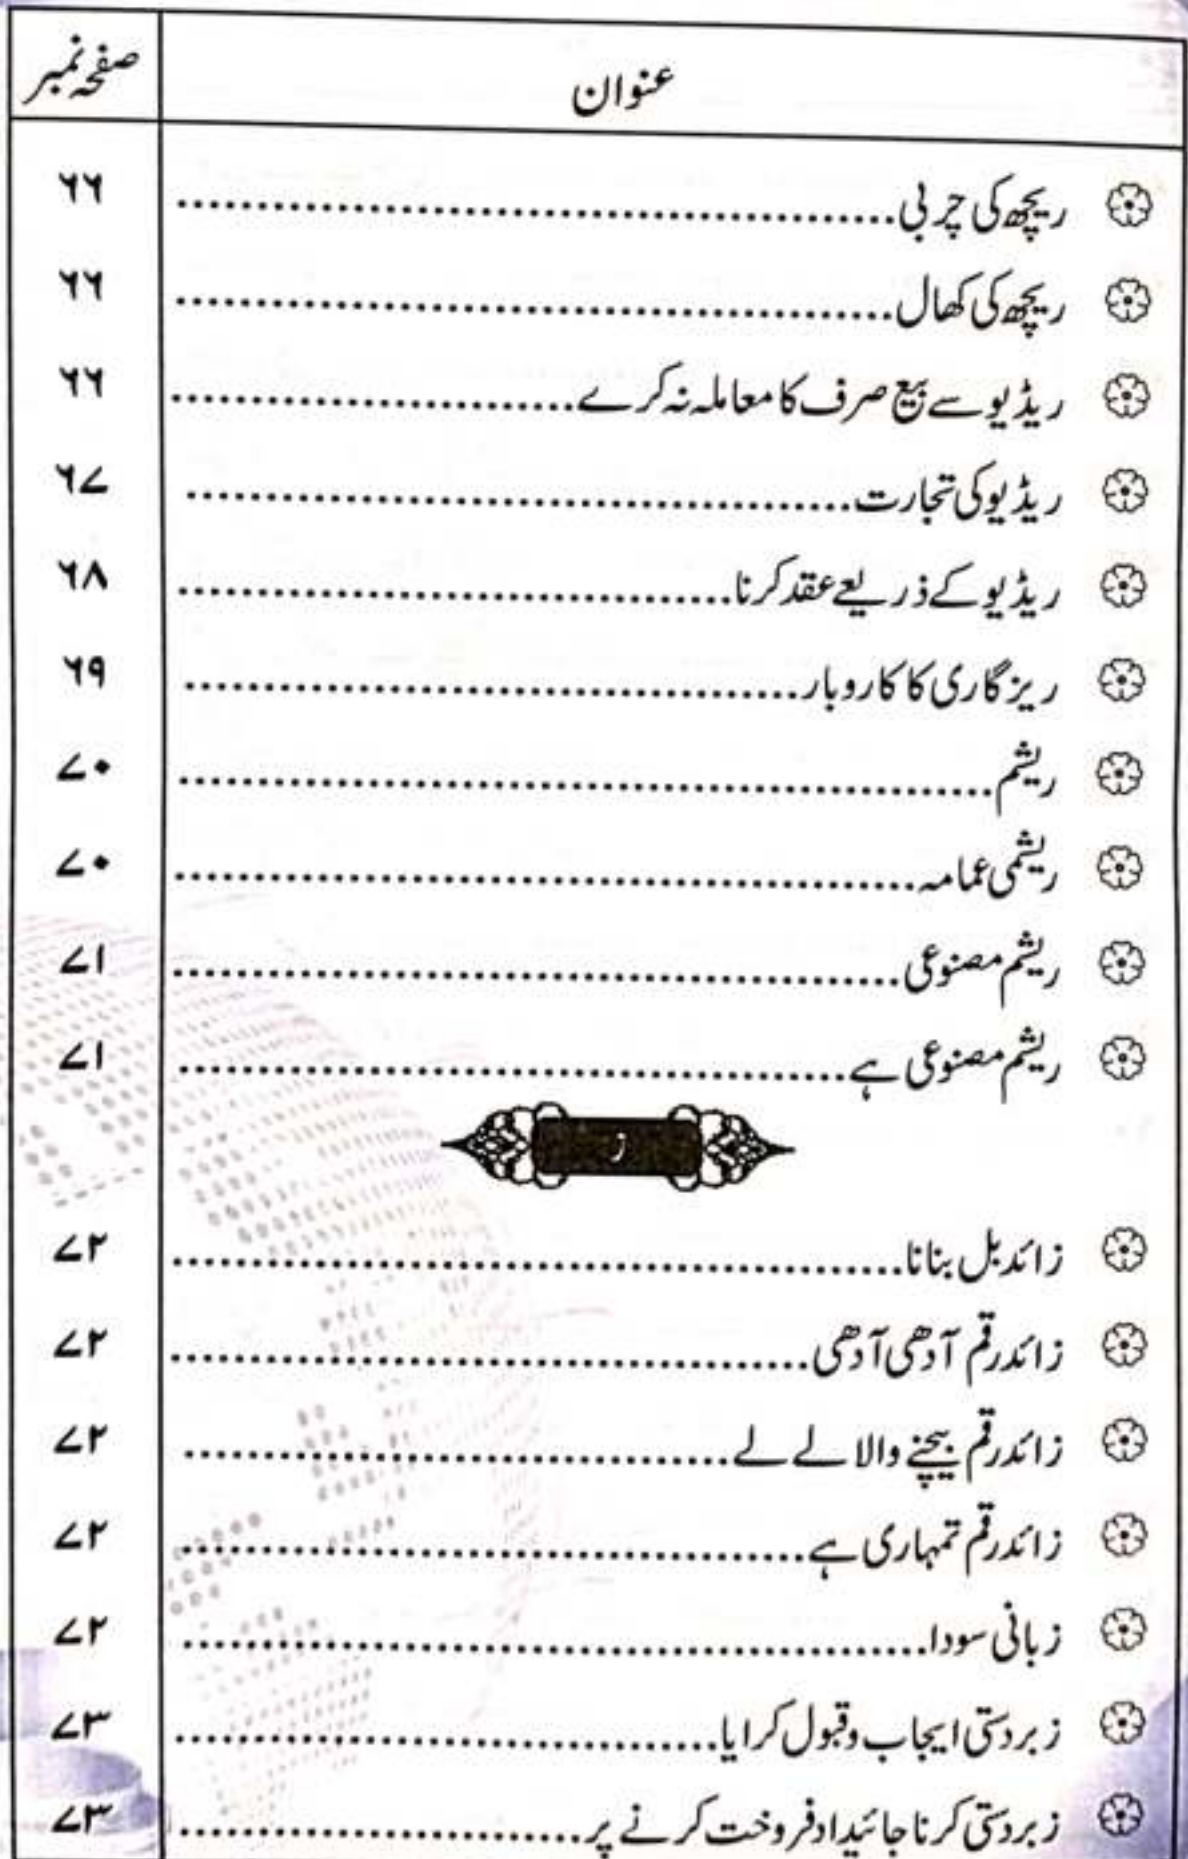 عنوان صفحہ نمبر
ریچھ کی چربی ۶۶
ریچھ کی کھال ۶۶
ریڈیو سے بیع صرف کا معاملہ نہ کرے ۶۶
ریڈیو کی تجارت ۶۷
ریڈیو کے ذریعے عقد کرنا ۶۸
ریزگاری کا کاروبار ۶۹
ریشم ۷۰
ریشمی عمامہ ۷۰
ریشم مصنوعی ۷۱
ریشم مصنوعی ہے ۷۱
ز
زائد بل بنانا ۷۲
زائد رقم آدھی آدھی ۷۲
زائد رقم بیچنے والا لے لے ۷۲
زائد رقم تمہاری ہے ۷۲
زبانی سودا ۷۲
زبردستی ایجاب وقبول کرایا ۷۳
زبردستی کرنا جائیداد فروخت کرنے پر ۷۳